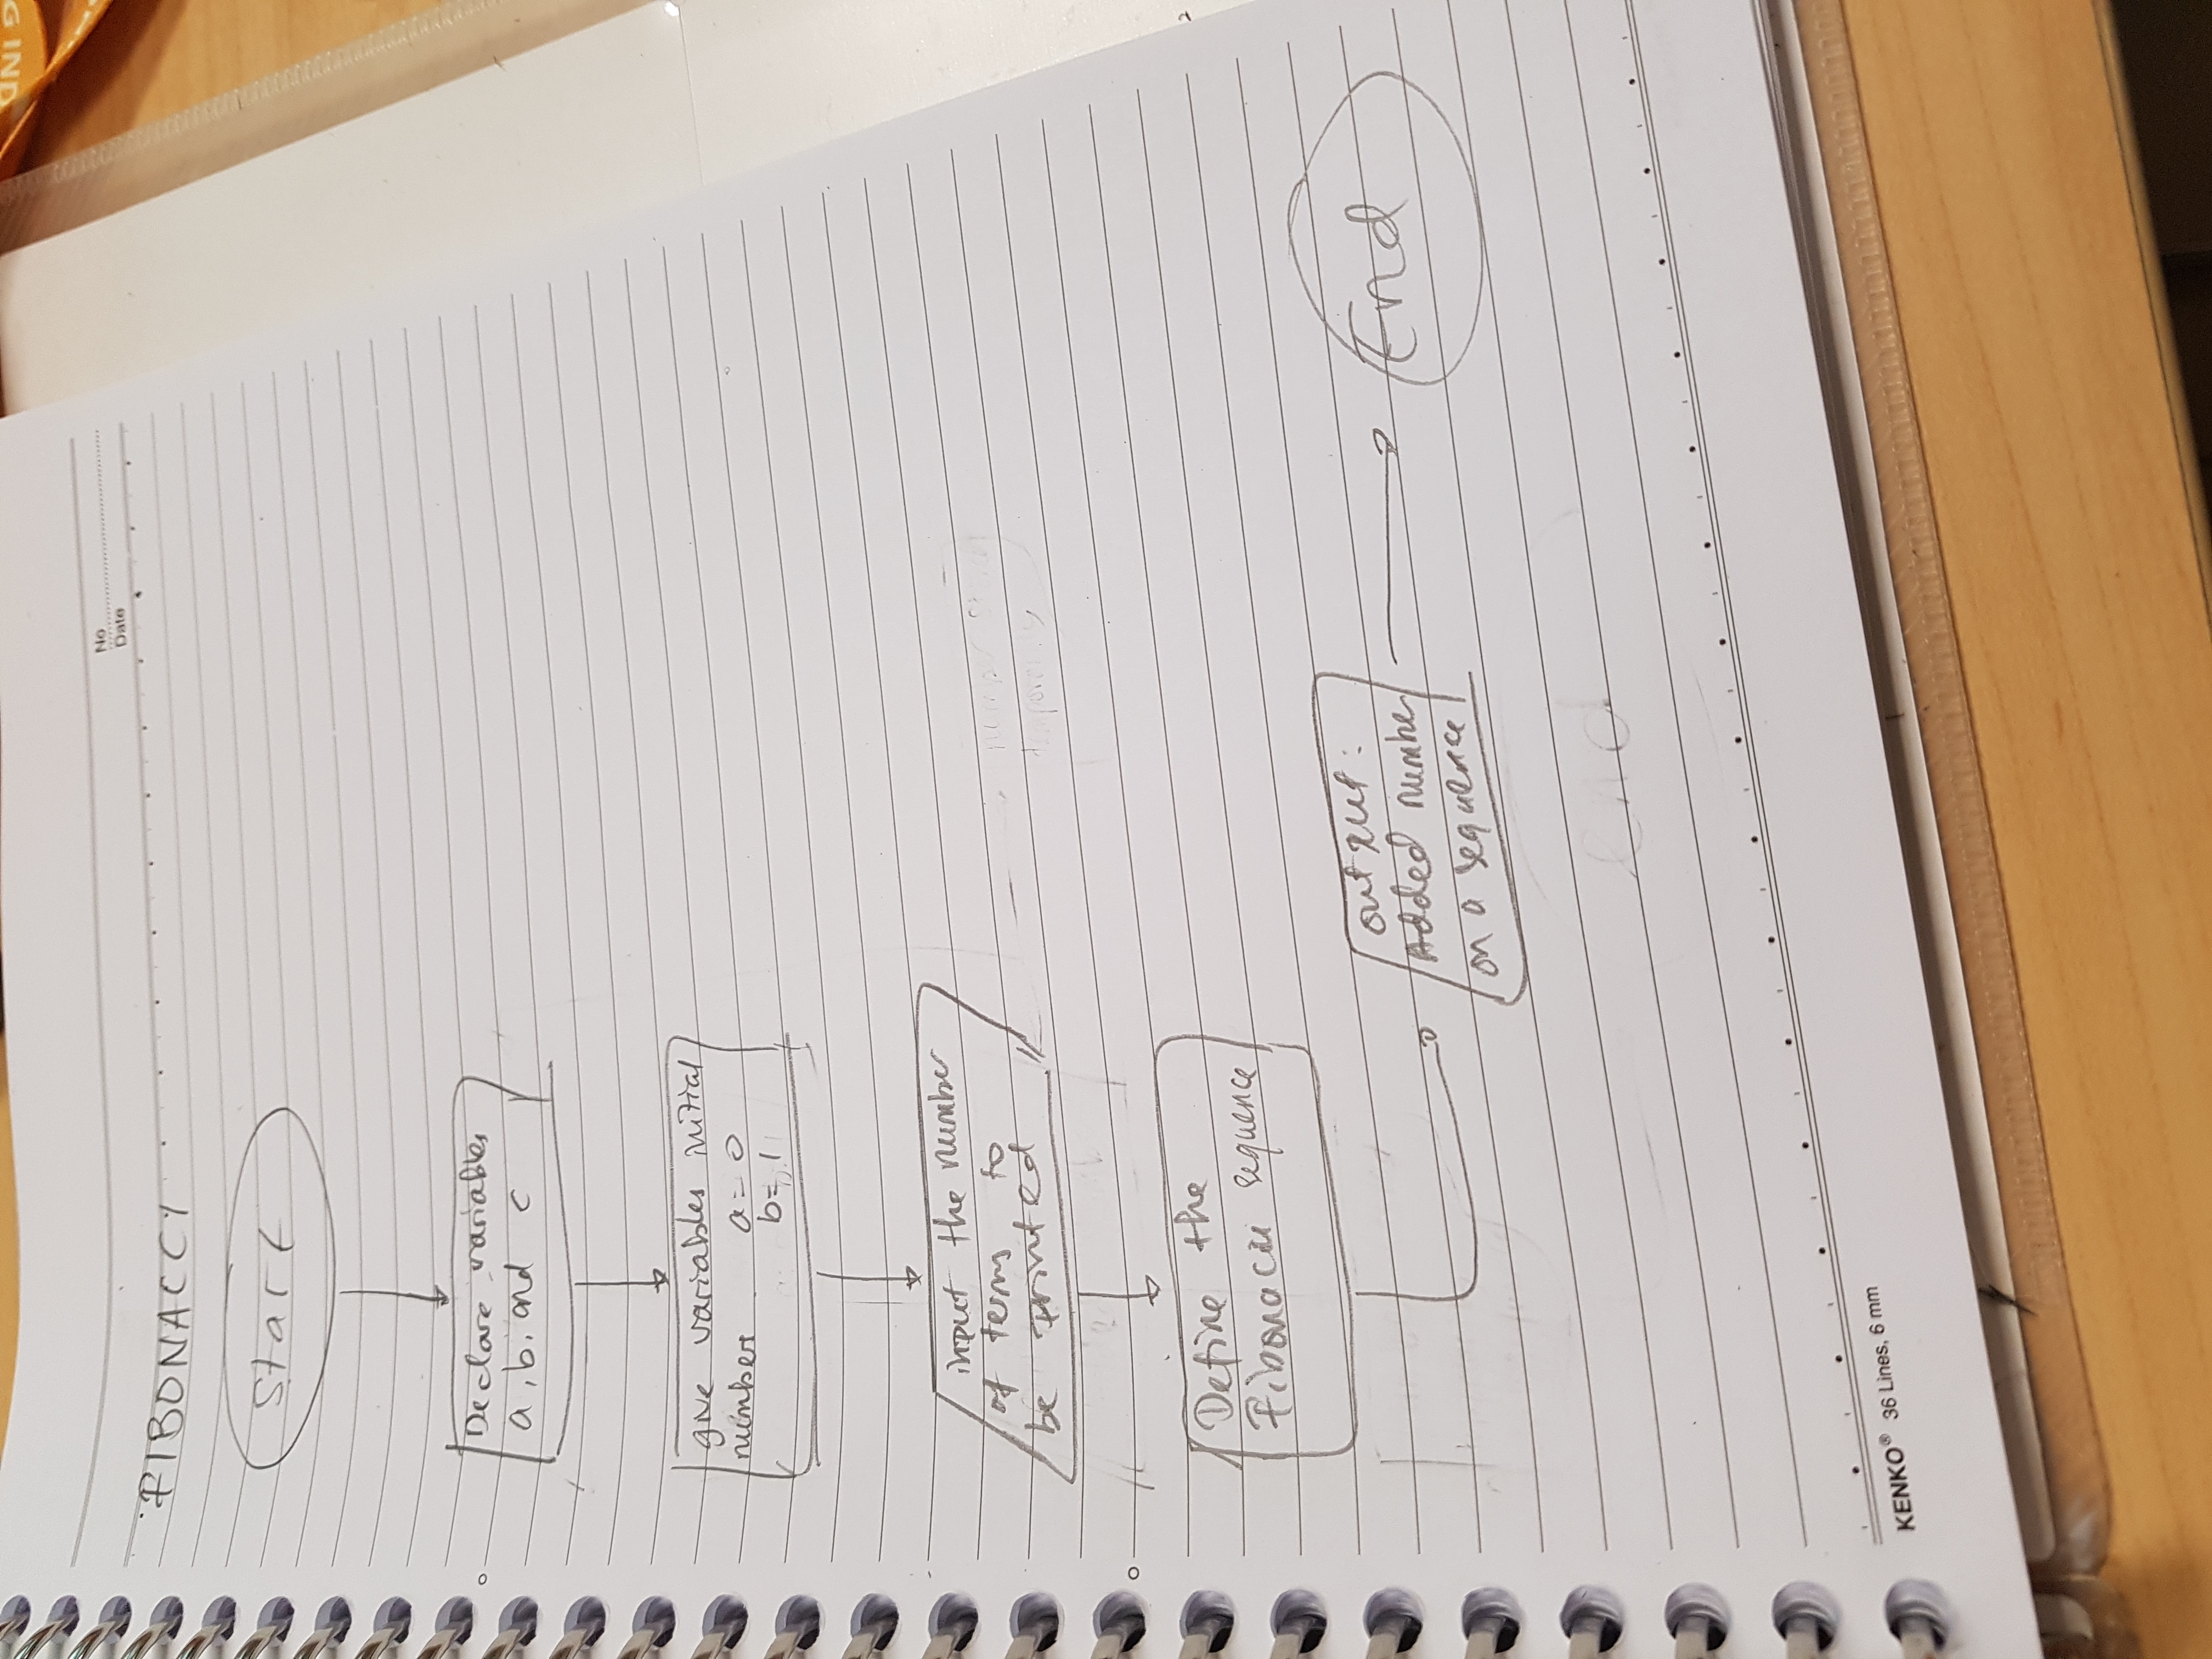 No
Date
FIBONACCY
Start
Declare variables
a, b, and c
give variables initial
numbers a = 0
b = 1
input the number
of terms to
be printed
Define the
Fibonacii sequence
output:
Added number
on a sequence
End
end
KENKO® 36 Lines, 6 mm
G IND